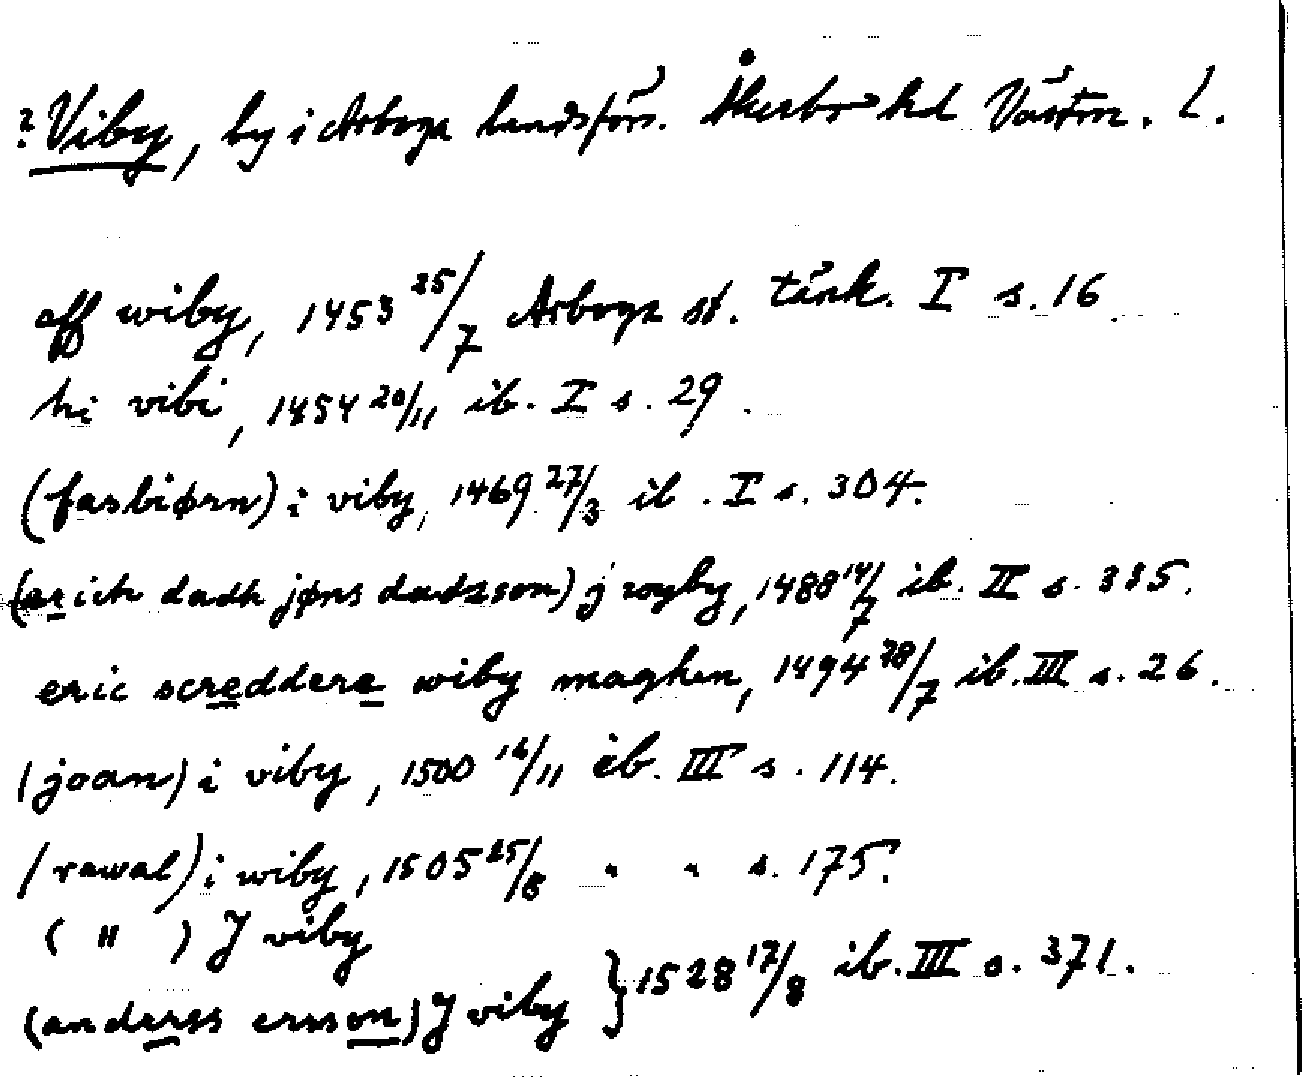 ? Viby, by i Arboga landsförs. Åkerbo hd Västm. L.
aff wiby, 1453 25/7 Arboga st. tänk. I s. 16
hi vibi, 1454 20/11 ib. I s. 29.
(fasbiørn) i viby, 1469 27/3 ib. I s. 304.
(erich dadh jøns dadzson) j woyby, 1488 14/7 ib. II s. 385.
eric screddere wiby maghen, 1494 28/7 ib. III s. 26.
(joan) i viby, 1500 16/11 ib. III s. 114.
(rawal) i wiby, 1505 25/8 " " s. 175.
( " ) J viby
(anderss ersson) J viby } 1528 17/8 ib. III s. 371.